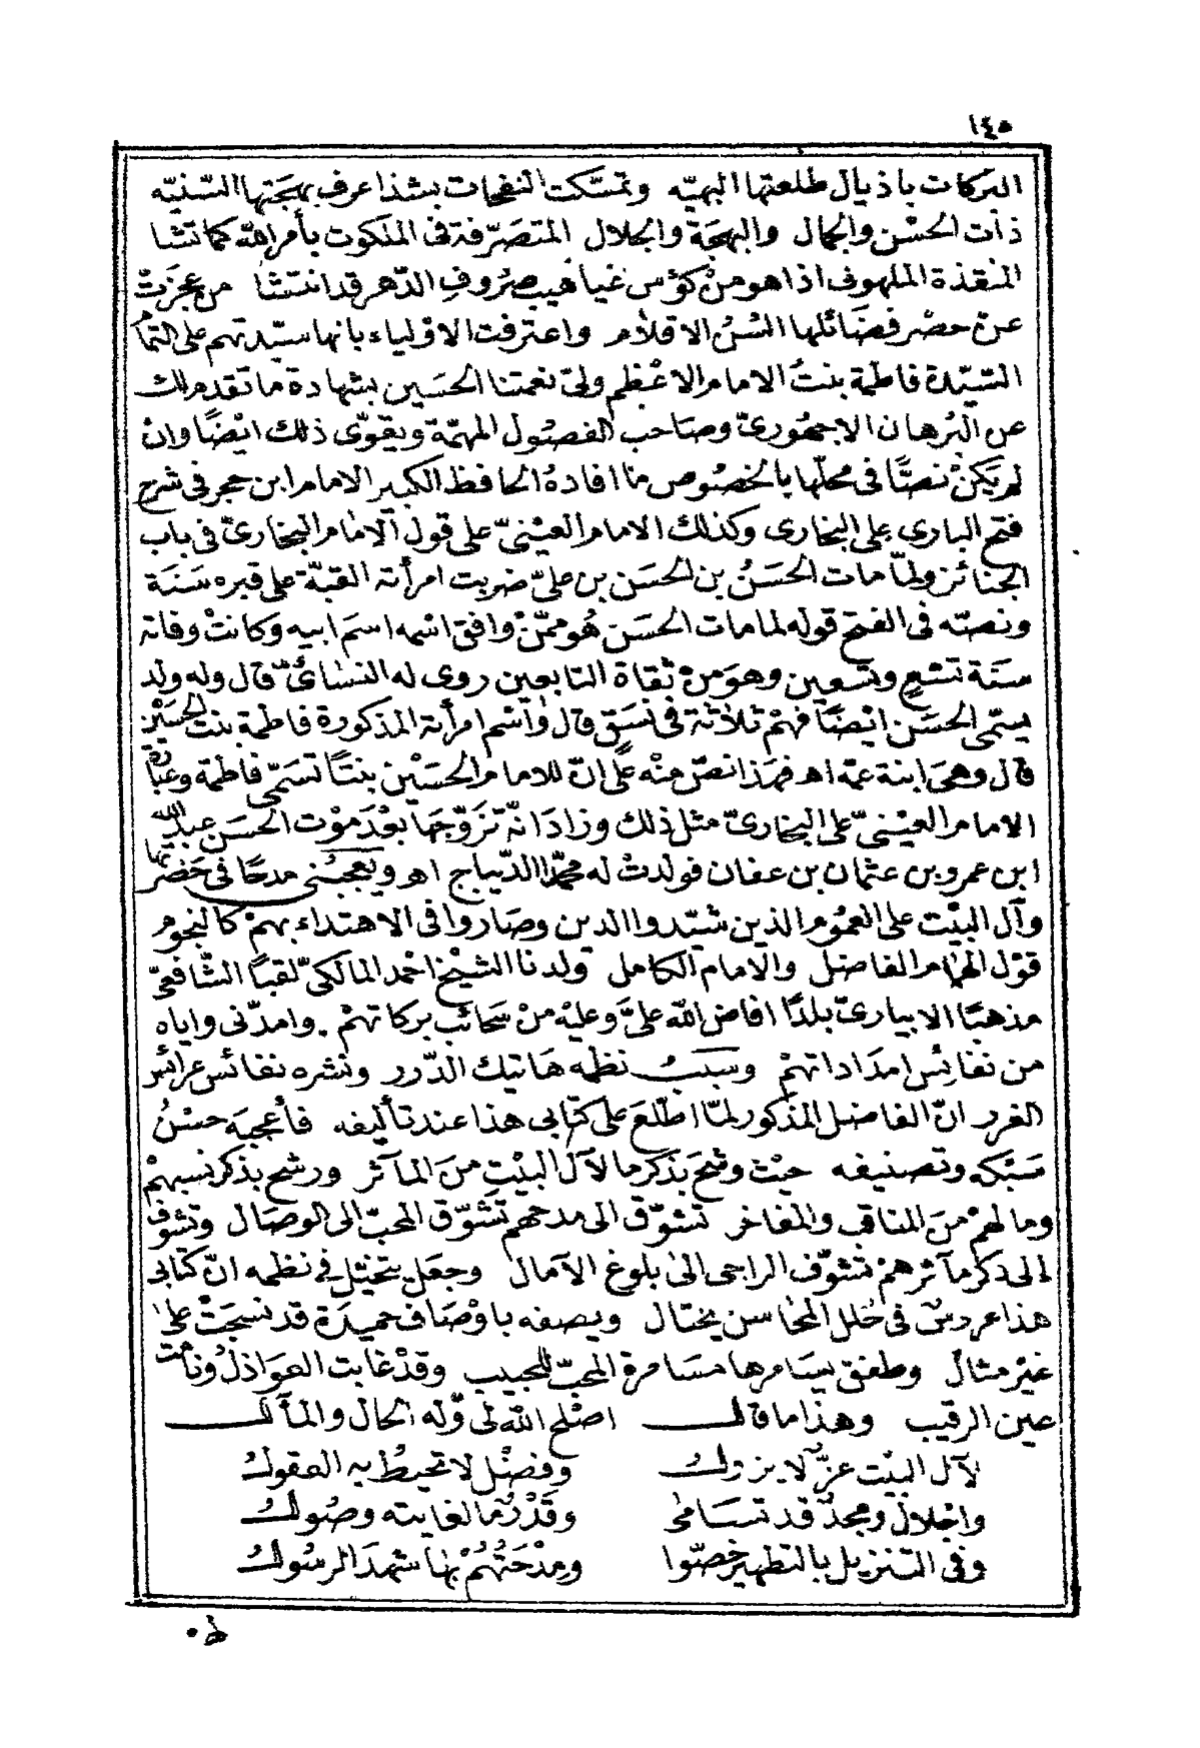 ١٤٥
البركات باذيال طلعتها البهيّه وتمسّكت النفحات بشذا عرف بهجتها السّنيّه
ذات الحسْن والجمال والبهجَة والجلال المتصَرّفة فى الملكوت بأمر الله كما تشا
المنقذة الملهوف اذا هو منْ كؤس غياهيب صرُوفِ الدّهر قد انتشا من عجزَتْ
عنْ حصْر فضَائلها السُنُ الاقلام واعترفت الاوْلياء بانها سيّدتهم على التما
السّيّدة فاطمة بنتُ الامام الاعْظم ولىّ نعمتنا الحسَين بشهادة ما تقدم لك
عن البُرهان الاجهُورىّ وصَاحب الفصُول المهمّة ويقوّى ذلك ايْضًا وانْ
لم يَكنْ نصًّا فى محلّها بالخصُوص ما افادهُ الحافظ الكبير الامام ابن حجر فى شرح
فتح البارى على البخارى وكذلك الامام العيْنىّ على قول الامام البخارىّ فى باب
الجنائز ولمّا مات الحسَنُ بن الحسَن بن علىّ ضربت امرأته القبّة على قبره سَنَة
ونصّه فى الفتح قوله لما مات الحسَن هُو ممّنْ وافق اسْمه اسمَ ابيه وكانتْ وفاته
سَنَة تسْعٍ وتسعين وهوَ منْ ثقاة التابعين روى له النسَائىّ قال وله ولد
يسمّى الحسَن ايْضًا فهمْ ثلاثة فى نسَق قال واسْم امرأته المذكورة فاطمة بنت الحسَيْن
قال وهىَ ابنة عمّه اهـ فهذا نصّ منْه على انّ للامام الحسَيْن بنتًا تسَمّى فاطمة وعبَارة
الامام العيْنىّ على البخارىّ مثل ذلك وزادَ انّه تزَوّجهَا بعْدَ موْت الحسَن عبدُ الله
ابن عمرو بن عثمان بن عفان فولدتْ له محمّدًا الدّيباج اهـ ويعجبُنى مدحًا فى حَضرتها
وآل البيْت على العمُوم الذين شيّدوا الدين وصَاروا فى الاهتداء بهمْ كالنجوم
قوْل الهمَام الفاضل والامام الكامل ولدنا الشيْخ احْمد المالكىّ لقبًا الشّافعىّ
مذهبًا الابيارىّ بلدًا افاض الله علىَّ وعليْه منْ سَحَائب بركاتهمْ وامدّنى واياه
من نفائس امدَاداتهمْ وسَبَبُ نظمه هَاتيك الدّرر ونثره نفائس عرائس
الغرر انّ الفاضل المذكور لمّا اطّلعَ على كتابى هذا عند تأليفه فأعجبَه حسْنُ
سَبْكه وتصنيفه حيْث وشّحَ بذكر ما لآل البيْتِ منَ المآثر ورشّح بذكر نسبهمْ
وما لهمْ منَ المناقب والمفاخر تشوّق الى مدحهم تشوّق المحبّ الى الوصَال وتشوّف
الى ذكر مآثرهمْ تشوّف الراجى الى بلوغ الآمال وجعَل يتخيّل فى نظمه انّ كتابى
هذا عروسٌ فى حُلل المحَاسن يختال ويصفه باوْصَاف حميدَة قد نسجَتْ على
غيْر مثال وطفق يسَامرها مسَامرة المحبّ للحبيب وقدْ غابت العوَاذلُ ونامت
عين الرقيب وهذا ما قال اصْلح الله لى وله الحال والمآل
لآل البيْت عزٌّ لا يزول وفضْل لا تحيطُ به العقول
واجْلالٌ ومجدٌ قد تسَامى وقدْرٌ ما لغايته وصُول
وفى التنزيل بالتطهير خصّوا ومدْحَتُهُمْ بها شهدَ الرسُول